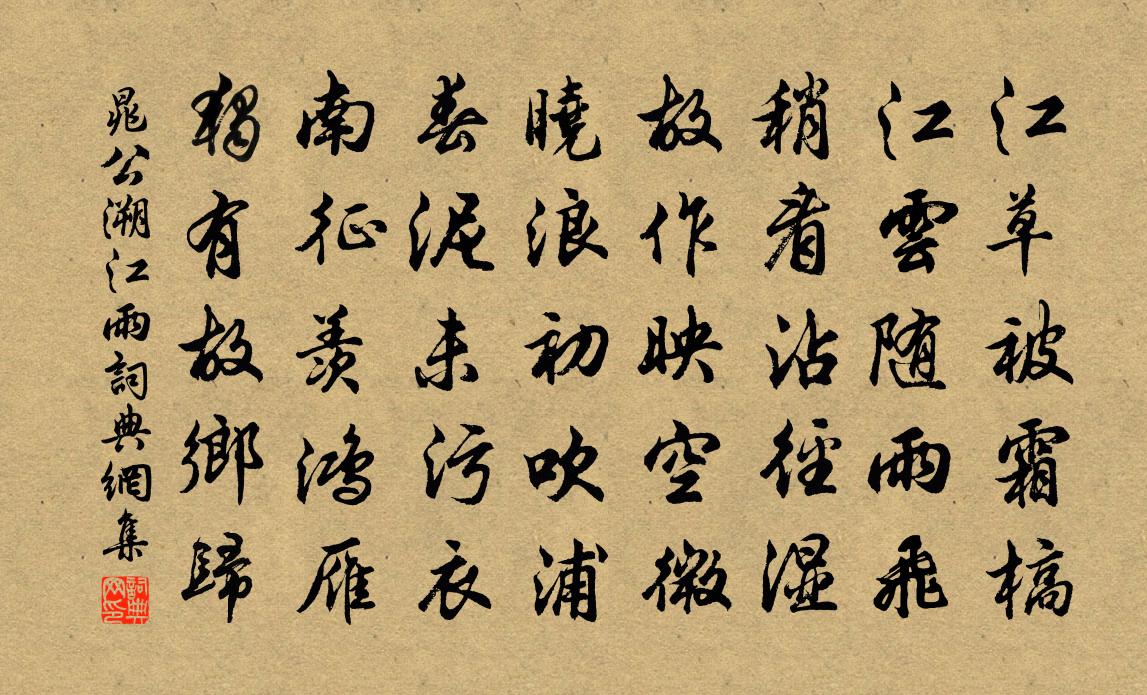 江草被霜槁
江雲随雨飛
稍看沾徑湿
故作映空微
曉浪初吹浦
春泥未污衣
南征羨鴻雁
獨有故鄉歸
晁公溯江雨詞典網集
詞典网印